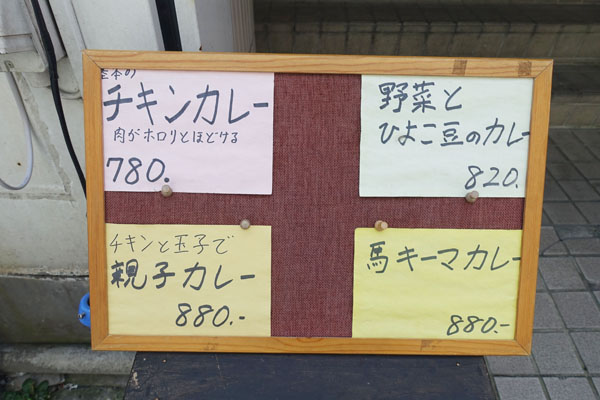 基本の
チキンカレー
肉がホロリとほどける
780.
野菜と
ひよこ豆のカレー
820.
チキンと玉子で
親子カレー
880.-
馬キーマカレー
880.-